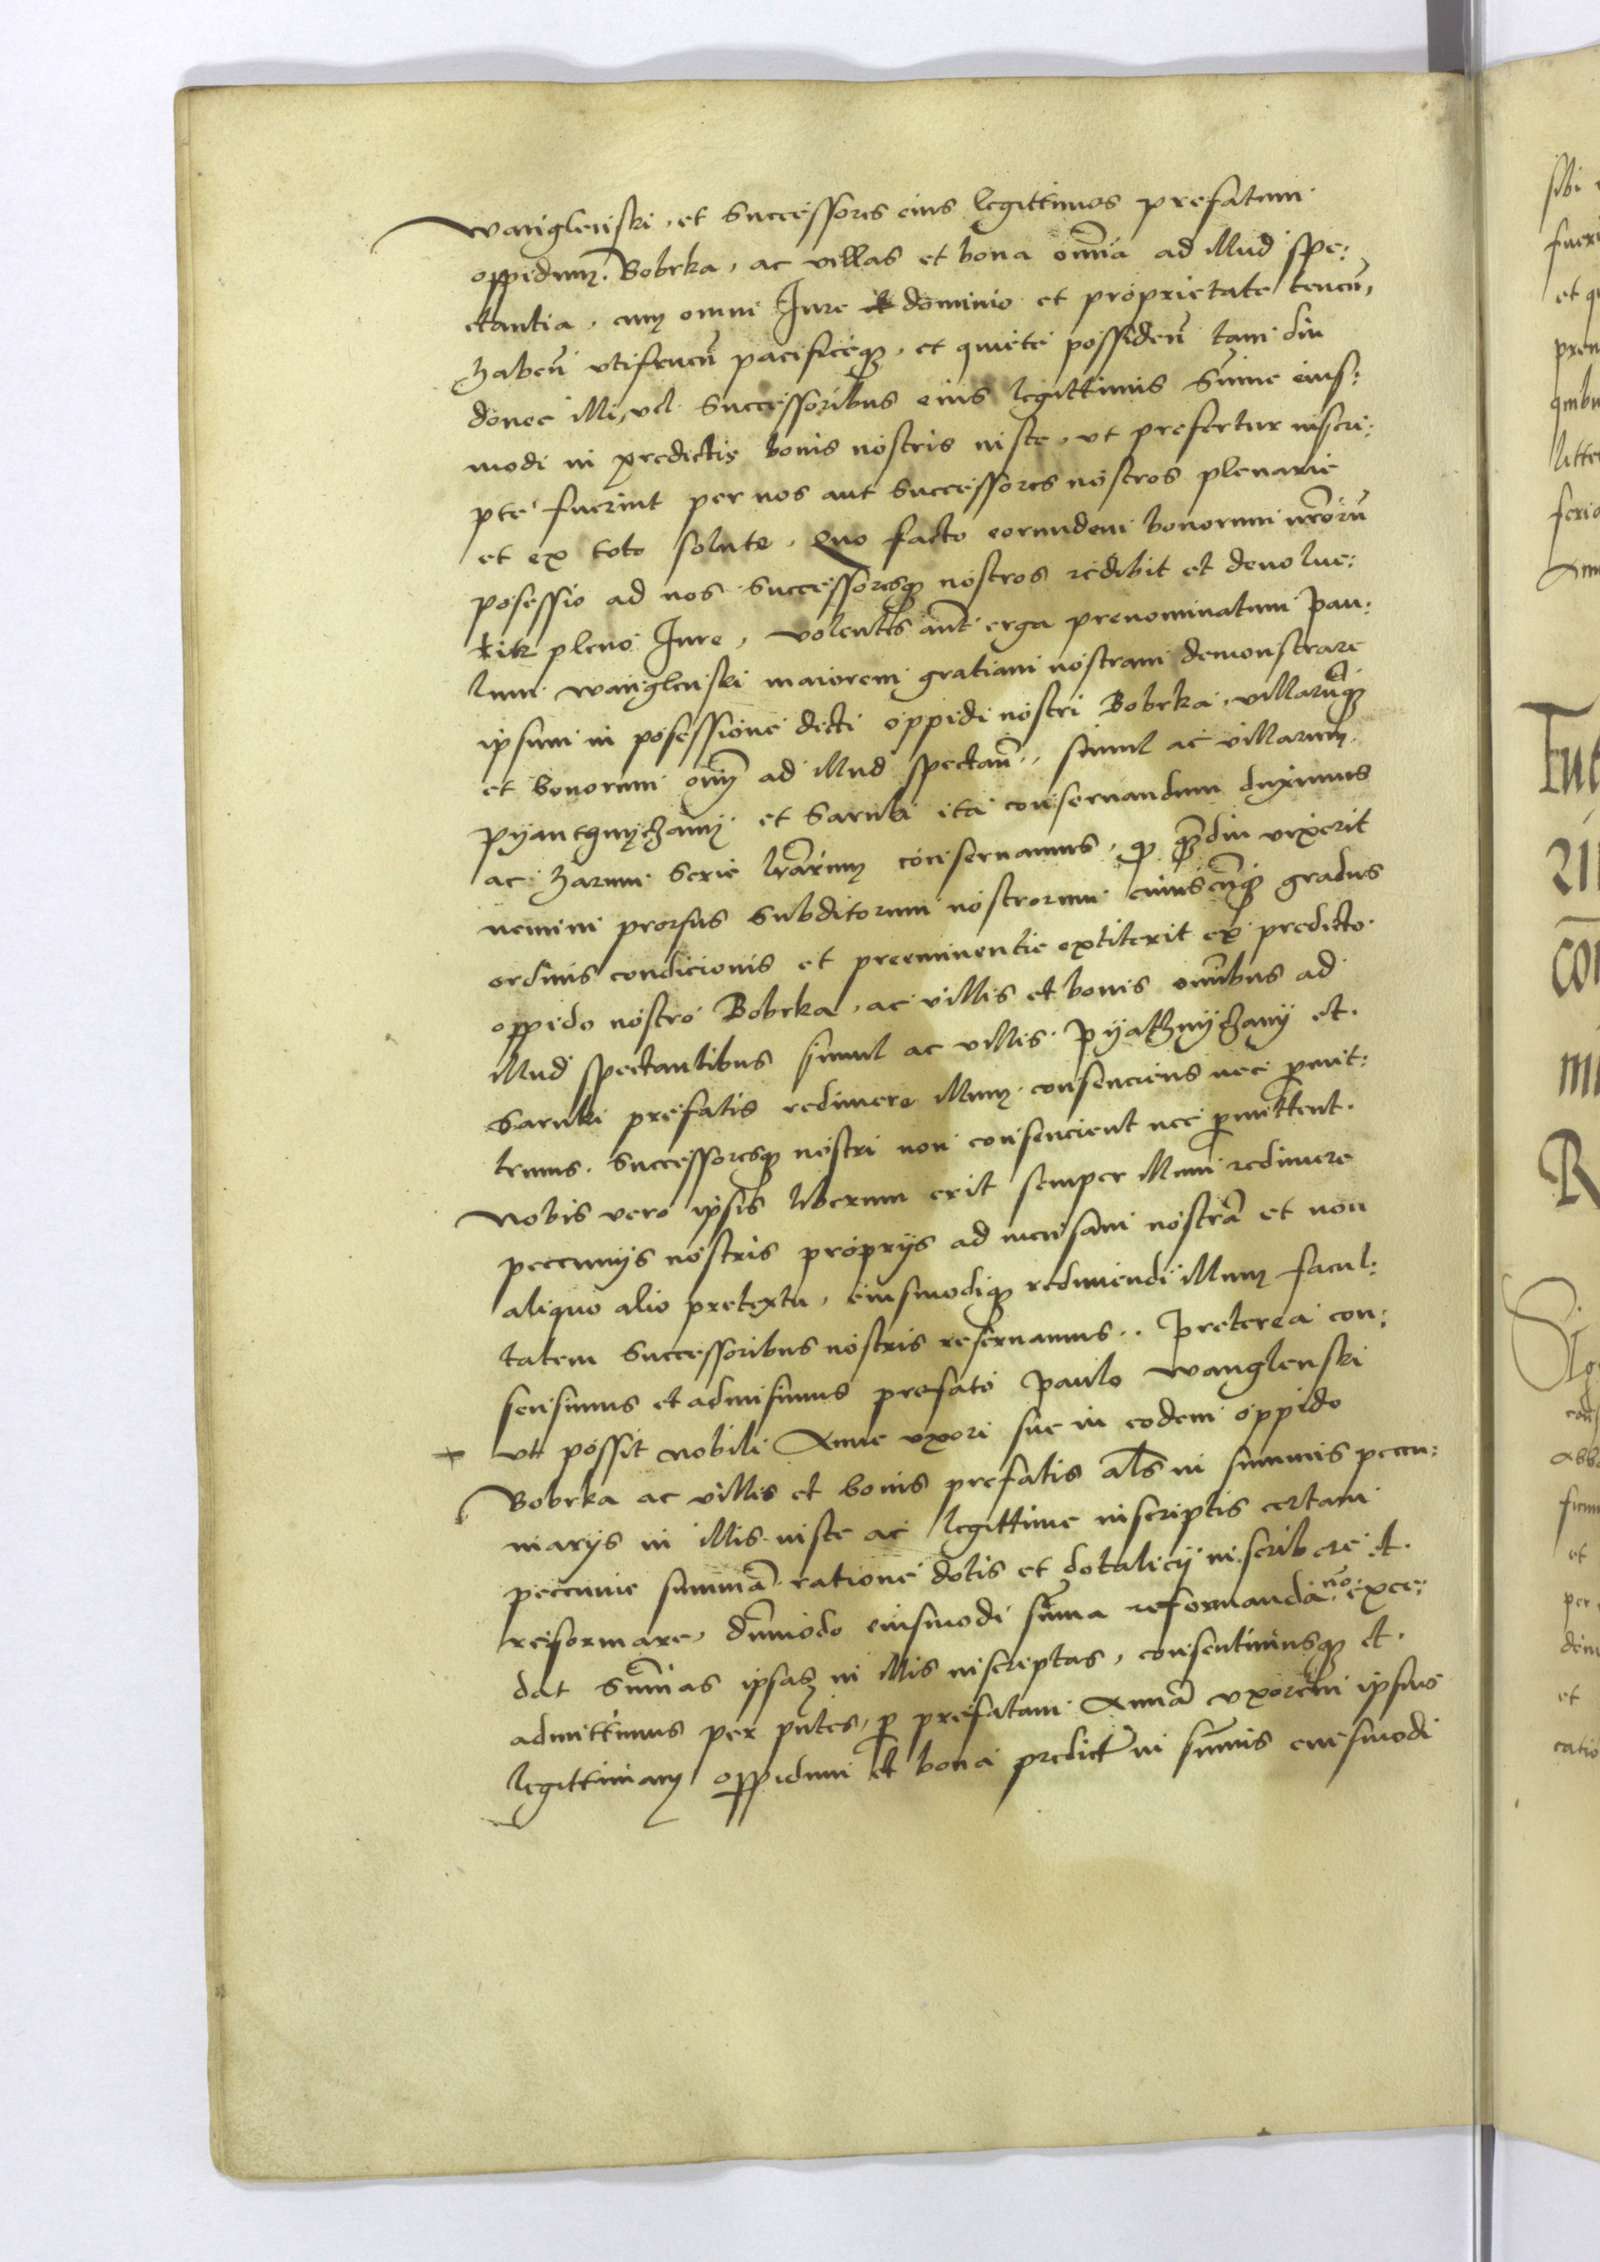 Wanglenski, et Successores eius legittimos prefatum
oppidum Bobrka, ac villas et bona om̄ia ad illud spe:
ctantia, cum omni Jure dominio et proprietate tenen̄,
haben̄ utifruen̄ pacificeq3, et quiete possiden̄ tam diu
donec illi, vel Successoribus eius legittimis Sum̄e eius:
modi in predictis bonis nostris iuste, ut prefertur inscri:
pte fuerint per nos aut Successores nostros plenarie
et ex toto solute, Quo facto eorundem bonorum nr̄orū
posessio ad nos Successoresq3 nostros redibit et devolve:
tur pleno Jure, volentes aūt erga prenominatum Pau:
lum Wanglenski maiorem gratiam nostram demonstrare
ipsum in posessione dicti oppidi nostri Bobrka, villarūq3
et bonorum om̄i ad illud spectan̄, simul ac villarum
Pyantgnyczany et Sarnki ita conservandum duximus
ac harum Serie lr̄arum conservamus, q q̄diu vixerit
nemini prorsus Subditorum nostrorum cuiuscūq3 gradus
ordinis condicionis et preeminentie extiterit ex predicto
oppido nostro Bobrka, ac villis et bonis om̄ibus ad
illud spectantibus simul ac villis Pyathnyczany et
Sarnki prefatis redimere illum consenciens nec p̄mit:
temus. Successoresq3 nostri non consencient nec p̄mittent.
Nobis vero ipsis liberum erit semper illum redimere
peccuniis nostris propriis ad mensam nostrā et non
aliquo alio pretextu, eiusmodiq3 redimendi illum facul:
tatem Successoribus nostris reservamus. Preterea con:
sensimus et admisimus prefato Paulo Wanglenski
ut possit nobili Anne uxori sue in eodem oppido
Bobrka ac villis et bonis prefatis al̄s in summis peccu:
niariis in illis iuste ac legittime inscriptis certam
peccunie summā ratione dotis et dotalicii inscribere et
reformare, dūmodo eiusmodi sum̄a reformanda nō exce:
dat Sum̄as ipsas in illis inscriptas, consentimusq3 et
admittimus per pn̄tes, p prefatam Annā uxorem ipsius
legittimam oppidum et bona predict̄ in sum̄is eiusmodi